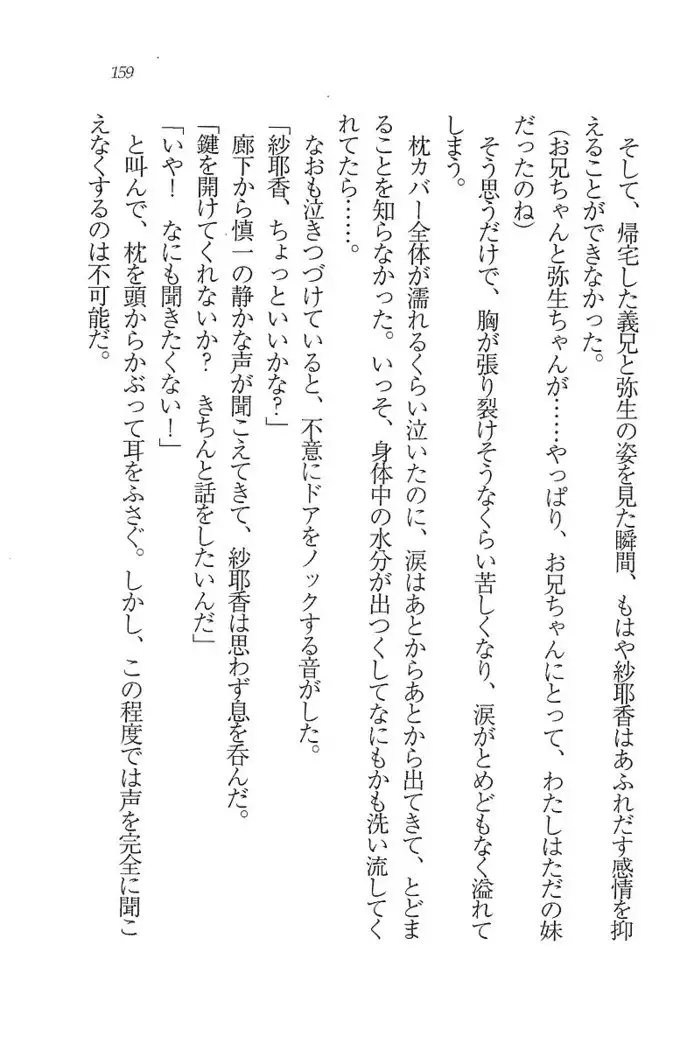 159
そして、帰宅した義兄と弥生の姿を見た瞬間、もはや紗耶香はあふれだす感情を抑
えることができなかった。
(お兄ちゃんと弥生ちゃんが……やっぱり、お兄ちゃんにとって、わたしはただの妹
だったのね)
そう思うだけで、胸が張り裂けそうなくらい苦しくなり、涙がとめどもなく溢れて
しまう。
枕カバー全体が濡れるくらい泣いたのに、涙はあとからあとから出てきて、とどま
ることを知らなかった。いっそ、身体中の水分が出つくしてなにもかも洗い流してく
れてたら……。
なおも泣きつづけていると、不意にドアをノックする音がした。
「紗耶香、ちょっといいかな?」
廊下から慎一の静かな声が聞こえてきて、紗耶香は思わず息を呑んだ。
「鍵を開けてくれないか? きちんと話をしたいんだ」
「いや! なにも聞きたくない!」
と叫んで、枕を頭からかぶって耳をふさぐ。しかし、この程度では声を完全に聞こ
えなくするのは不可能だ。